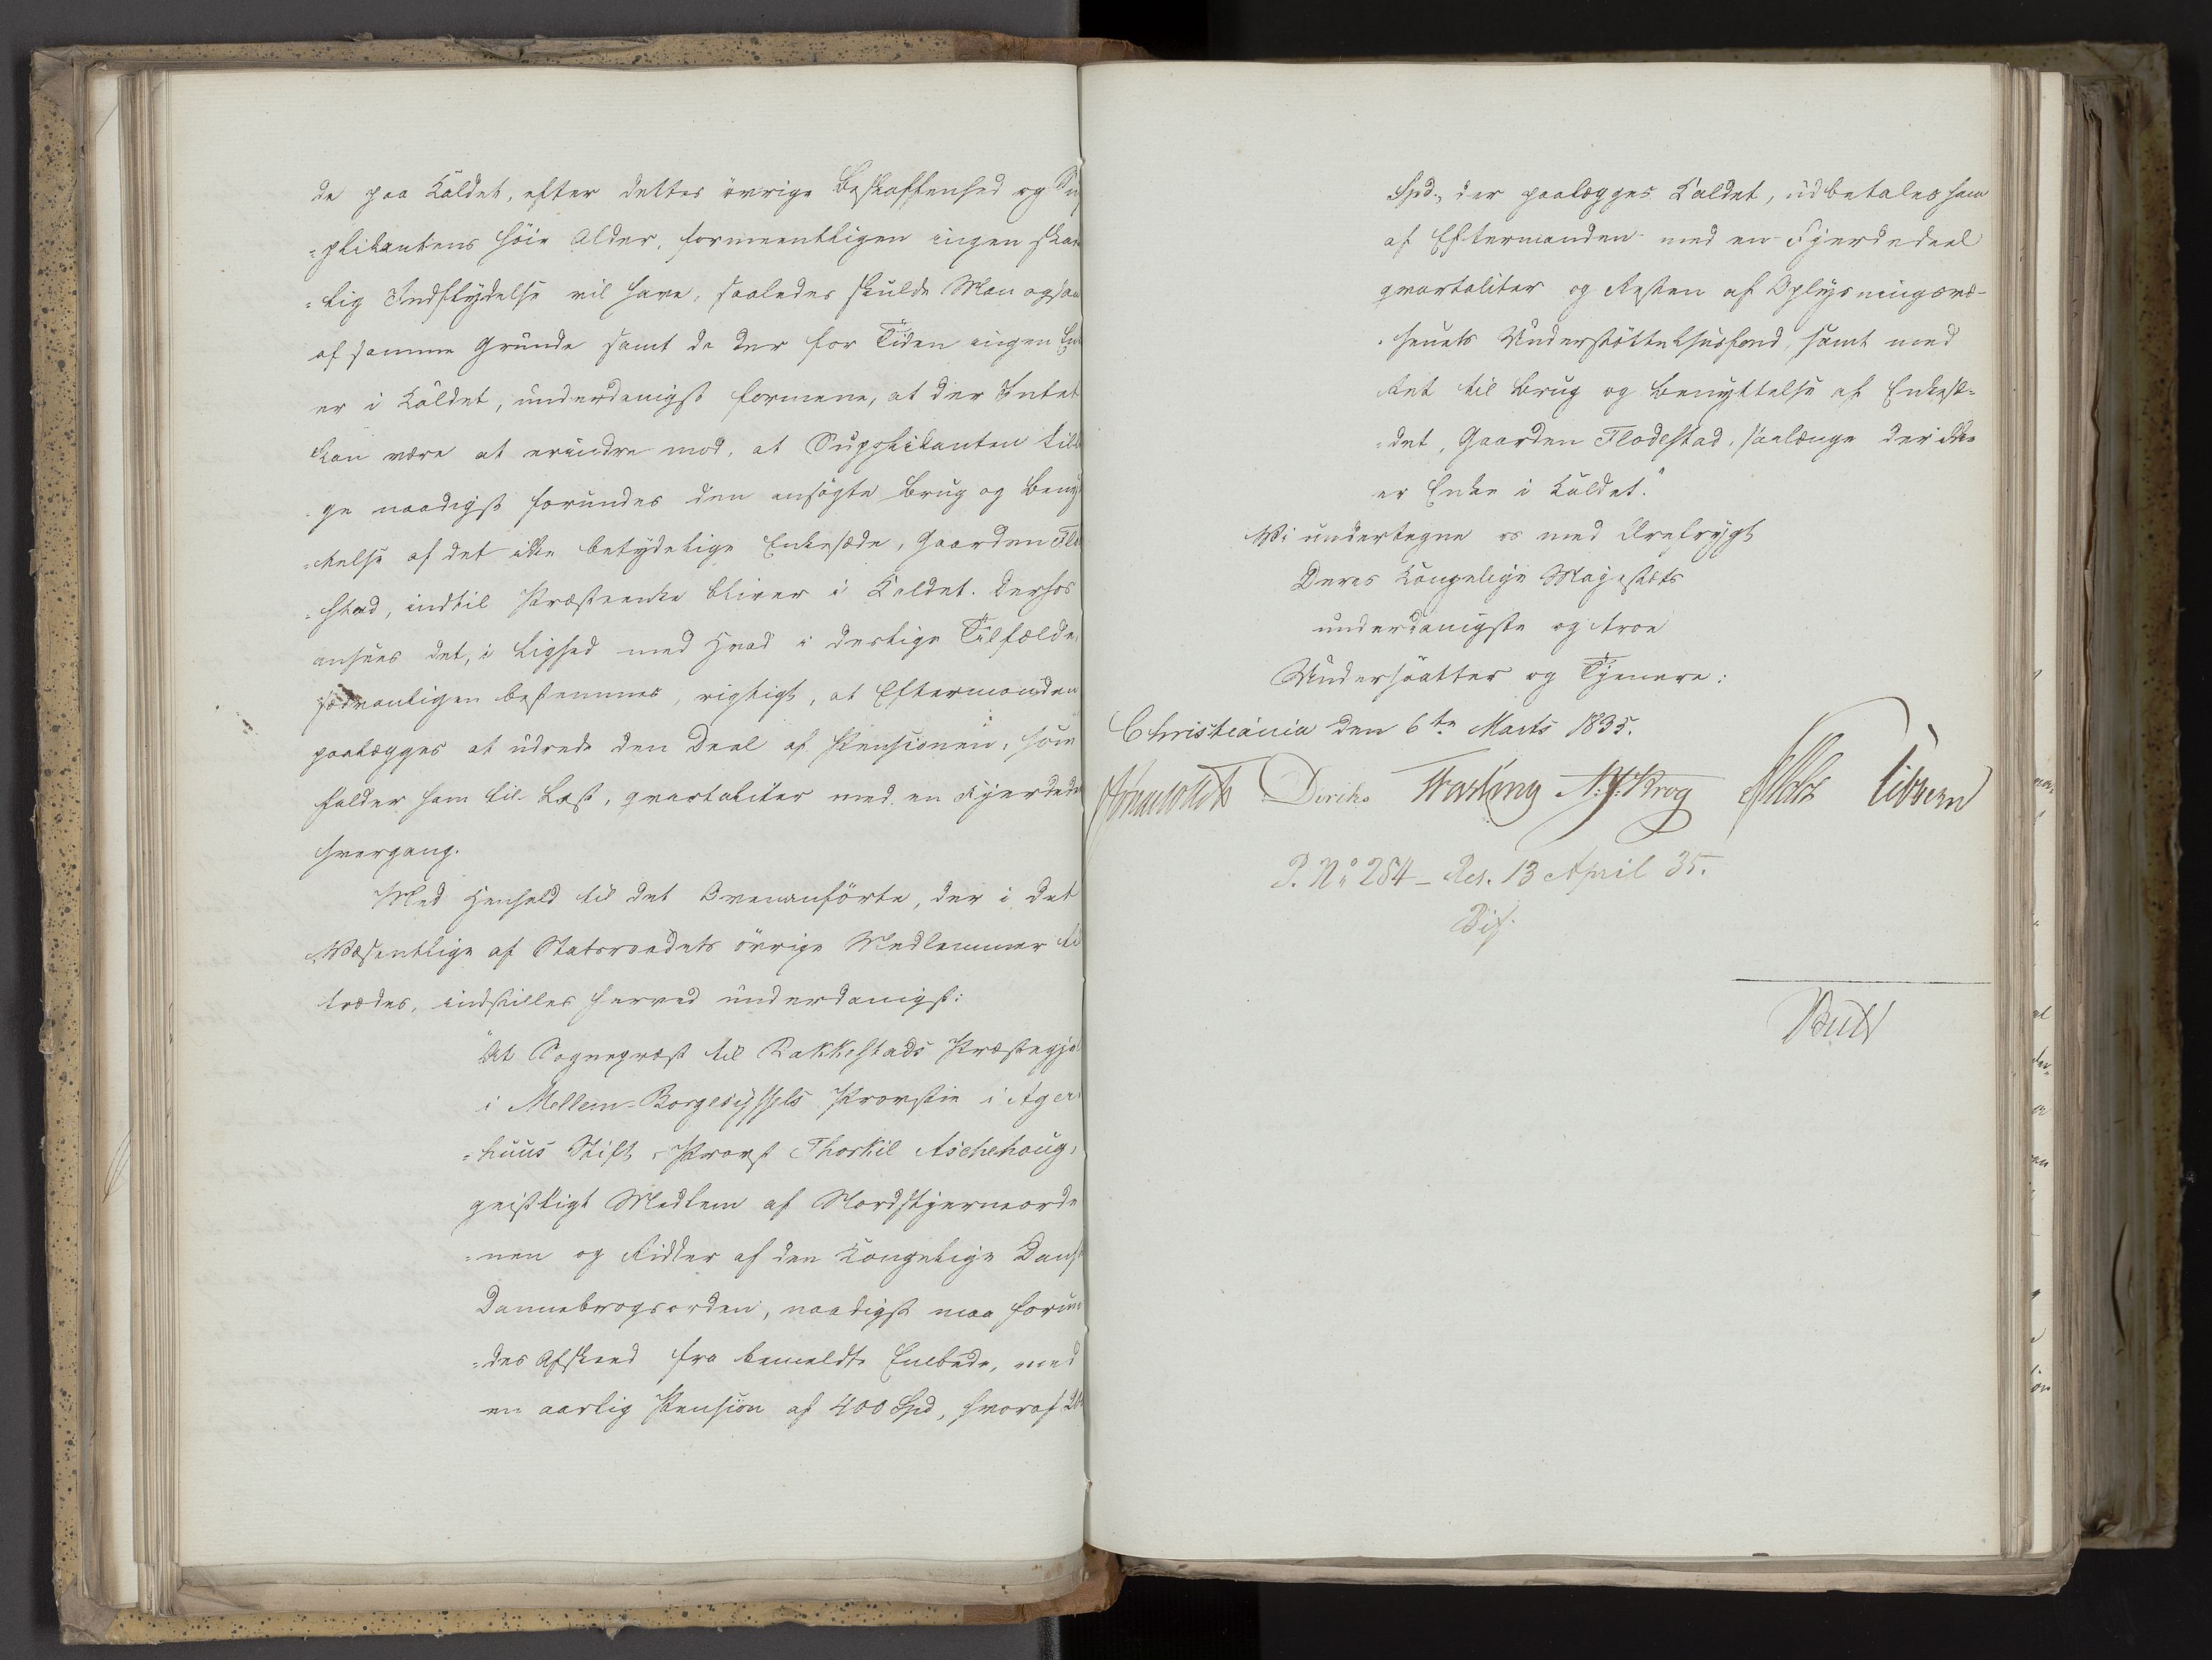 de paa Kaldet, efter dettes övrige Beskaffenhed og Sup
=plikantens höie Alder, formeentligen ingen skade
=lig Indflydelse vil have, saaledes skulde Man ogsaa
af samme Grunde samt da der for Tiden ingen Enke
er i Kaldet, underdanigst formene, at der Intet
kan være at erindre mod, at Supplikanten tilli
ge naadigst forundes den ansögte Brug og Benyt
=telse af det ikke betydelige Enkesæde, Gaarden Flo
=stad, indtil Præsteenke bliver i Kaldet. Derhos
ansees det, i Lighed med Hvad i deslige Tilfælde
sædvanligen bestemmes, rigtigt, at Eftermanden
paalægges at udrede den Deel af Pensionen, som
falder ham til Last, qvartaliter med en Fjerdede
hvergang.
Med Henhold til det Ovenanförte, der i det
Væsentlige af Statsraadets övrige Medlemmer til
trædes, indstilles herved underdanigst:
"At Sognepræst til Rakkestads Præstegje
i Mellem-Borgesyssels Provstie i Agers
=huus Stift, Provst Thorkil Aschehoug,
geistligt Medlem af Nordstjerneorde
=nen og Ridder af den Kongelige Dansk
Dannebrogsorden, naadigst maa forun
=des Afskeed fra bemeldte Embede, med
en aarlig Pension af 400 Spd, hvoraf
Spd., der paalægges Kaldet, udbetales ham
af Eftermanden med en Fjerdedeel
qvartaliter og Resten af Oplysningsvæ-
=senets Understöttelsesfond, samt med
Ret til Brug og Benyttelse af Enkesæ=
=det, Gaarden Flodestad, saalænge der ikke
er Enke i Kaldet."
Vi undertegne os med Ærefrygt
Deres Kongelige Majestæts
underdanigste og troe
Undersaatter og Tjenere:
Christiania den 6te Marts 1835.
Diriks Fasting N.J. Krog Vibe Vibern
P. No 284 - Res. 13 April 35.
Bull